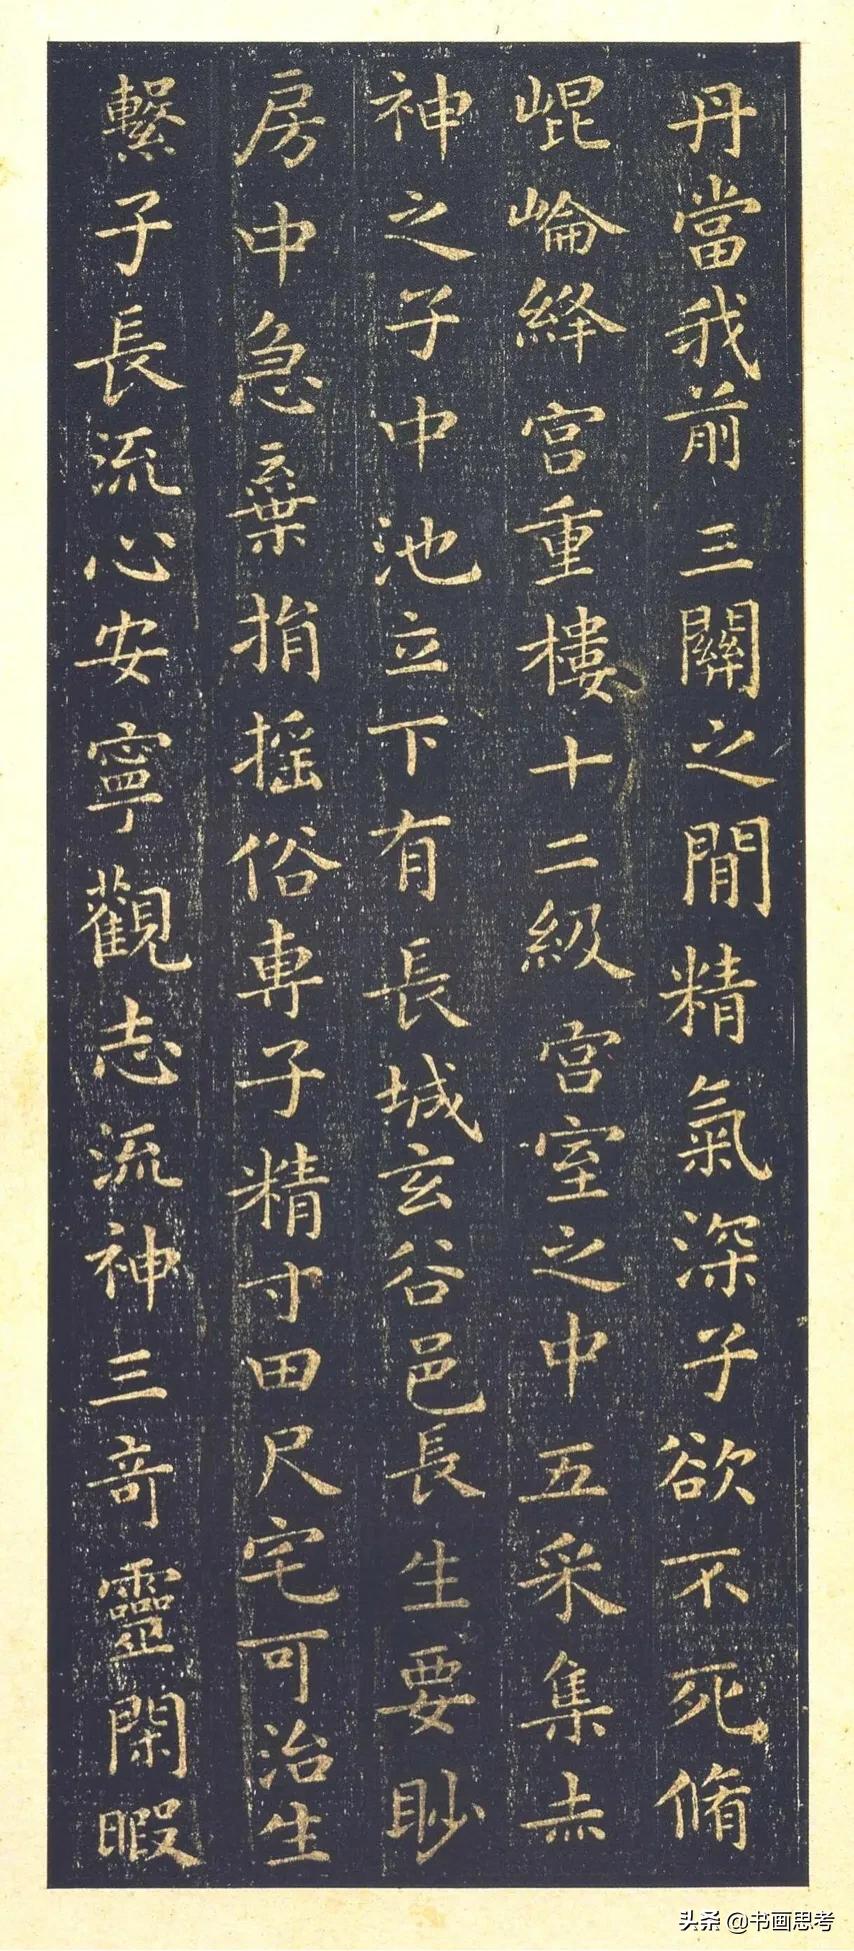 丹當我前三關之間精氣深子欲不死脩
崐崘絳宫重樓十二級宫室之中五采集赤
神之子中池立下有長城玄谷邑長生要眇
房中急棄捐摇俗專子精寸田尺宅可治生
繫子長流心安寧觀志流神三奇靈閑暇
头条 @书画思考